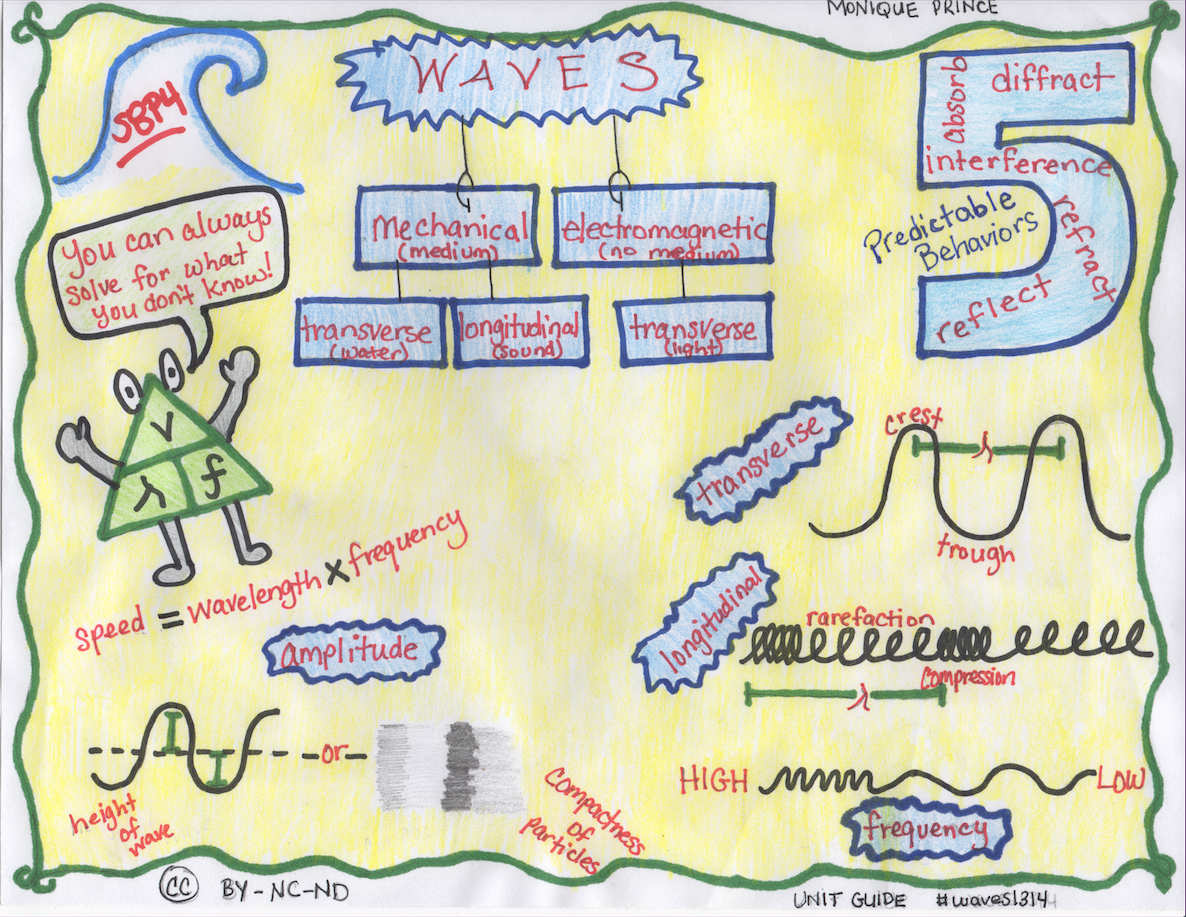 MONIQUE PRINCE
SBP4
WAVES
absorb
diffract
interference
refract
reflect
Predictable
Behaviors
Mechanical
(medium)
electromagnetic
(no medium)
transverse
(water)
longitudinal
(sound)
transverse
(light)
You can always
solve for what
you don't know!
v
λ
f
speed = wavelength x frequency
transverse
crest
λ
trough
longitudinal
rarefaction
compression
λ
amplitude
-or-
height
of
wave
compactness
of
particles
HIGH
LOW
frequency
CC BY-NC-ND
UNIT GUIDE #waves1314